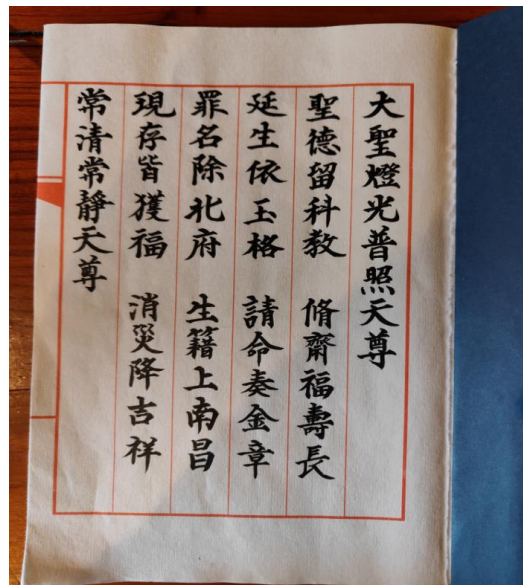 大聖燈光普照天尊
聖德留科教　脩齋福壽長
延生依玉格　請命奏金章
罪名除北府　生籍上南昌
現存皆獲福　消災降吉祥
常清常靜天尊